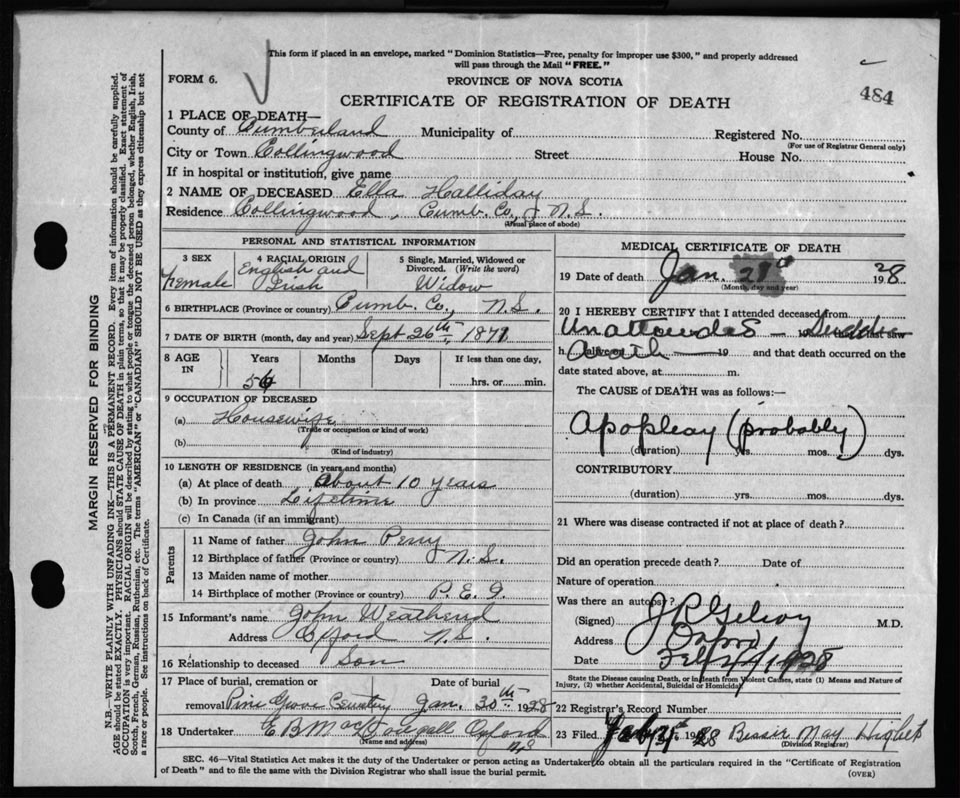 This form if placed in an envelope, marked "Dominion Statistics—Free, penalty for improper use $300," and properly addressed
will pass through the Mail "FREE."
FORM 6.
PROVINCE OF NOVA SCOTIA
484
CERTIFICATE OF REGISTRATION OF DEATH
1 PLACE OF DEATH—
County of Cumberland Municipality of Registered No.
(For use of Registrar General only)
City or Town Collingwood Street House No.
If in hospital or institution, give name
2 NAME OF DECEASED Ella Halliday
Residence Collingwood, Cumb. Co., N.S.
(Usual place of abode)
PERSONAL AND STATISTICAL INFORMATION
3 SEX 4 RACIAL ORIGIN 5 Single, Married, Widowed or Divorced. (Write the word)
Female English and Irish Widow
6 BIRTHPLACE (Province or country) Cumb. Co., N.S.
7 DATE OF BIRTH (month, day and year) Sept 26th, 1871
8 AGE IN Years Months Days If less than one day,
56 hrs. or min.
9 OCCUPATION OF DECEASED
(a) Housewife
(Trade or occupation or kind of work)
(b)
(Kind of industry)
10 LENGTH OF RESIDENCE (in years and months)
(a) At place of death About 10 years
(b) In province Lifetime
(c) In Canada (if an immigrant)
Parents
11 Name of father John Perry
12 Birthplace of father (Province or country) N.S.
13 Maiden name of mother
14 Birthplace of mother (Province or country) P.E.I.
15 Informant's name John
Address Oxford N.S.
16 Relationship to deceased Son
17 Place of burial, cremation or Date of burial
removal Pine Grove Cemetery Jan. 30th 1928
18 Undertaker Oxford N.S
(Name and address)
MEDICAL CERTIFICATE OF DEATH
19 Date of death Jan. 28 1928
(Month, day and year)
20 I HEREBY CERTIFY that I attended deceased from
Unattended – Sudden last saw
h death 19 and that death occurred on the
date stated above, at m.
The CAUSE of DEATH was as follows:—
Apoplexy (probably)
(duration) yrs. mos. dys.
CONTRIBUTORY
(duration) yrs. mos. dys.
21 Where was disease contracted if not at place of death?
Did an operation precede death? Date of
Nature of operation
Was there an autopsy?
(Signed) M.D.
Address Oxford
Date 1928
State the Disease causing Death, or in death from Violent Causes, state (1) Means and Nature of
Injury, (2) whether Accidental, Suicidal or Homicidal
22 Registrar's Record Number
23 Filed 1928 Bessie May
(Division Registrar)
SEC. 46—Vital Statistics Act makes it the duty of the Undertaker or person acting as Undertaker to obtain all the particulars required in the "Certificate of Registration
of Death" and to file the same with the Division Registrar who shall issue the burial permit.
(OVER)
MARGIN RESERVED FOR BINDING
N.B.—WRITE PLAINLY WITH UNFADING INK—THIS IS A PERMANENT RECORD. Every item of information should be carefully supplied.
AGE should be stated EXACTLY. PHYSICIANS should STATE CAUSE OF DEATH in plain terms, so that it may be properly classified. Exact statement of
OCCUPATION is very important. RACIAL ORIGIN will be described by stating to what people or tongue the deceased person belonged, whether English, Irish,
Scotch, French, German, Russian, Ruthenian, etc. The terms "AMERICAN" or "CANADIAN" SHOULD NOT BE USED as they express citizenship but not
a race or people. See instructions on back of Certificate.